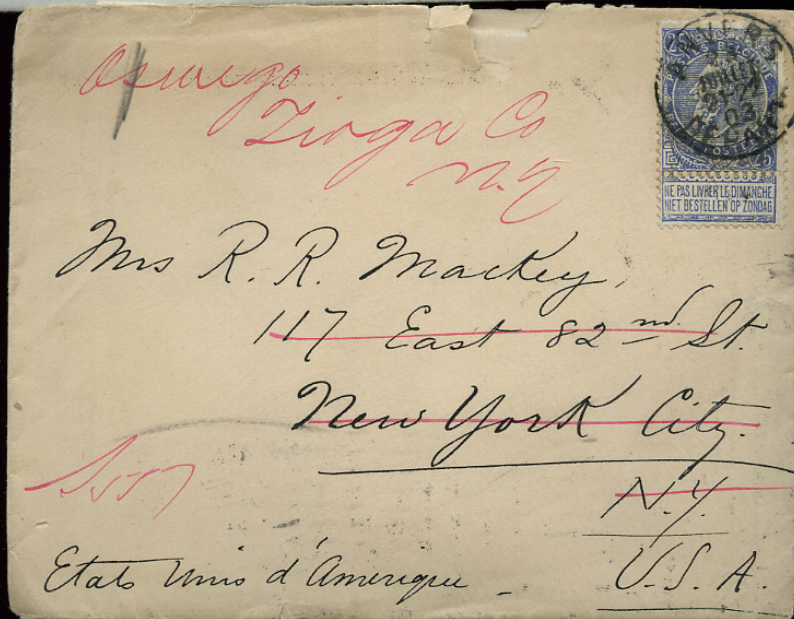 Oswego
Tioga Co
N.Y
ANVERS
03
DEPART
POSTES
25
NE PAS LIVRER LE DIMANCHE
NIET BESTELLEN OP ZONDAG
Mrs R. R. Mackey,
117 East 82nd. St.
New York City.
N.Y.
Etats Unis d'Amerique
U.S.A.